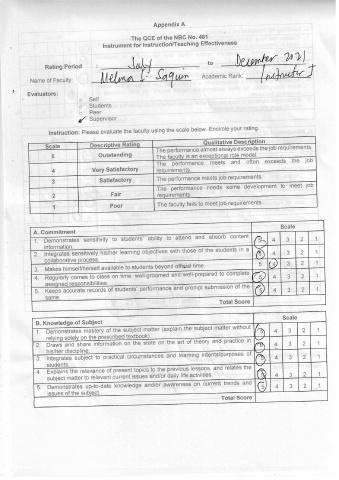 Appendix A
The QCE of the NBC No. 461
Instrument for Instruction/Teaching Effectiveness
Rating Period : July to December 2021
Name of Faculty: Melma L. Saquin Academic Rank: Instructor I
Evaluators:
Self
Students
Peer
✓ Supervisor
Instruction: Please evaluate the faculty using the scale below. Encircle your rating.
Scale Descriptive Rating Qualitative Description
5 Outstanding The performance almost always exceeds the job requirements. The faculty is an exceptional role model
4 Very Satisfactory The performance meets and often exceeds the job requirements
3 Satisfactory The performance meets job requirements
2 Fair The performance needs some development to meet job requirements.
1 Poor The faculty fails to meet job requirements.
A. Commitment Scale
1. Demonstrates sensitivity to students' ability to attend and absorb content information. 5 4 3 2 1
2. Integrates sensitively his/her learning objectives with those of the students in a collaborative process. 5 4 3 2 1
3. Makes himself/herself available to students beyond official time. 5 4 3 2 1
4. Regularly comes to class on time, well-groomed and well-prepared to complete assigned responsibilities. 5 4 3 2 1
5. Keeps accurate records of students' performance and prompt submission of the same. 5 4 3 2 1
Total Score
B. Knowledge of Subject Scale
1. Demonstrates mastery of the subject matter (explain the subject matter without relying solely on the prescribed textbook). 5 4 3 2 1
2. Draws and share information on the state on the art of theory and practice in his/her discipline. 5 4 3 2 1
3. Integrates subject to practical circumstances and learning intents/purposes of students. 5 4 3 2 1
4. Explains the relevance of present topics to the previous lessons, and relates the subject matter to relevant current issues and/or daily life activities. 5 4 3 2 1
5. Demonstrates up-to-date knowledge and/or awareness on current trends and issues of the subject. 5 4 3 2 1
Total Score